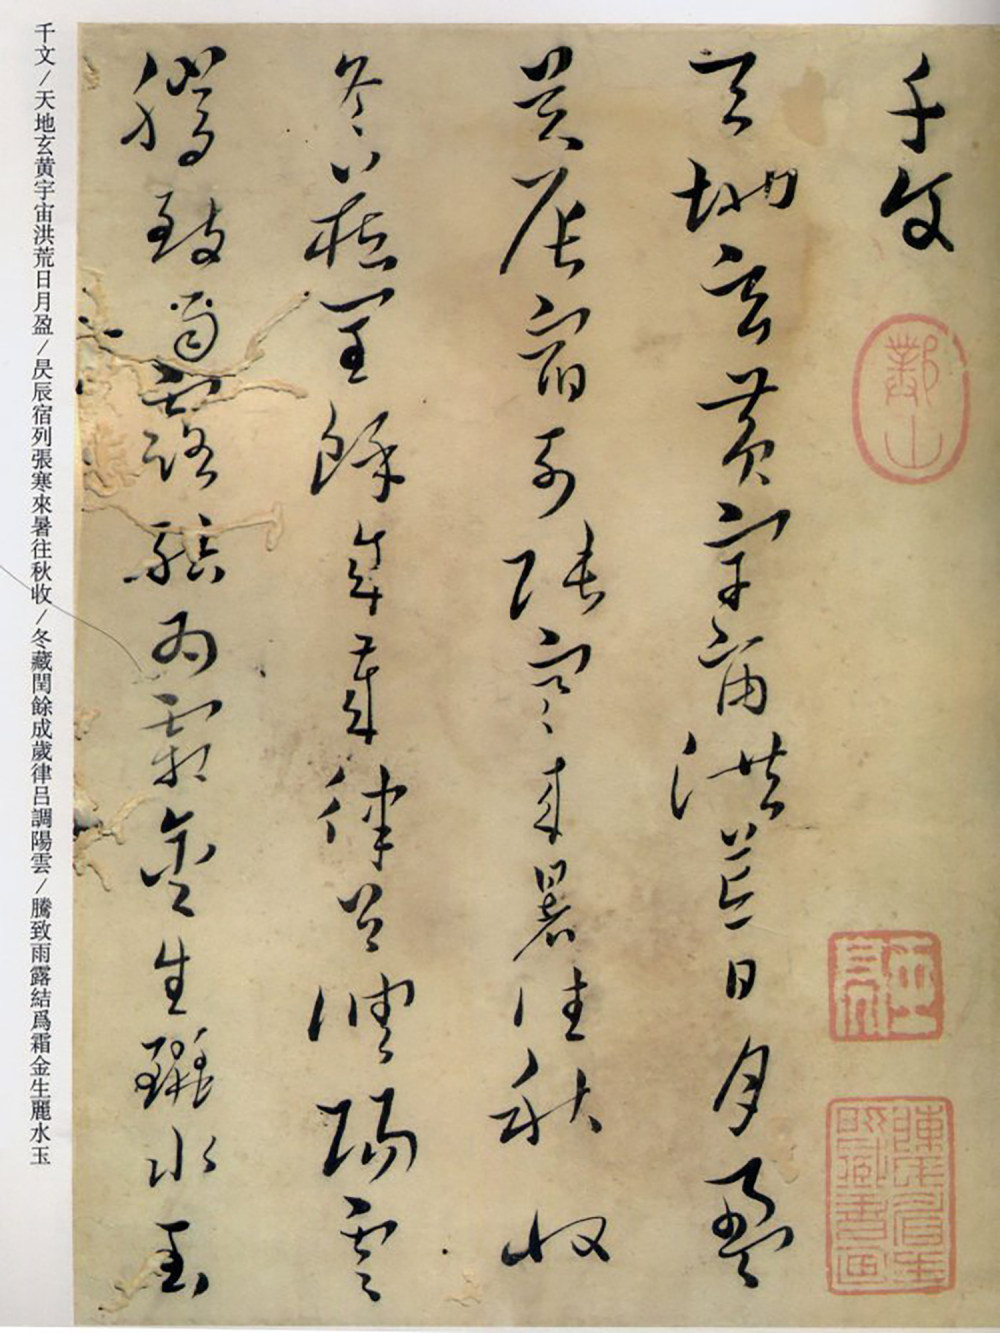 千文
天地玄黄宇宙洪荒日月盈
昃辰宿列張寒來暑往秋收
冬藏閏餘成歲律呂調陽雲
騰致雨露結爲霜金生麗水玉
千文/天地玄黄宇宙洪荒日月盈/昃辰宿列張寒來暑往秋收/冬藏閏餘成歲律呂調陽雲/騰致雨露結爲霜金生麗水玉